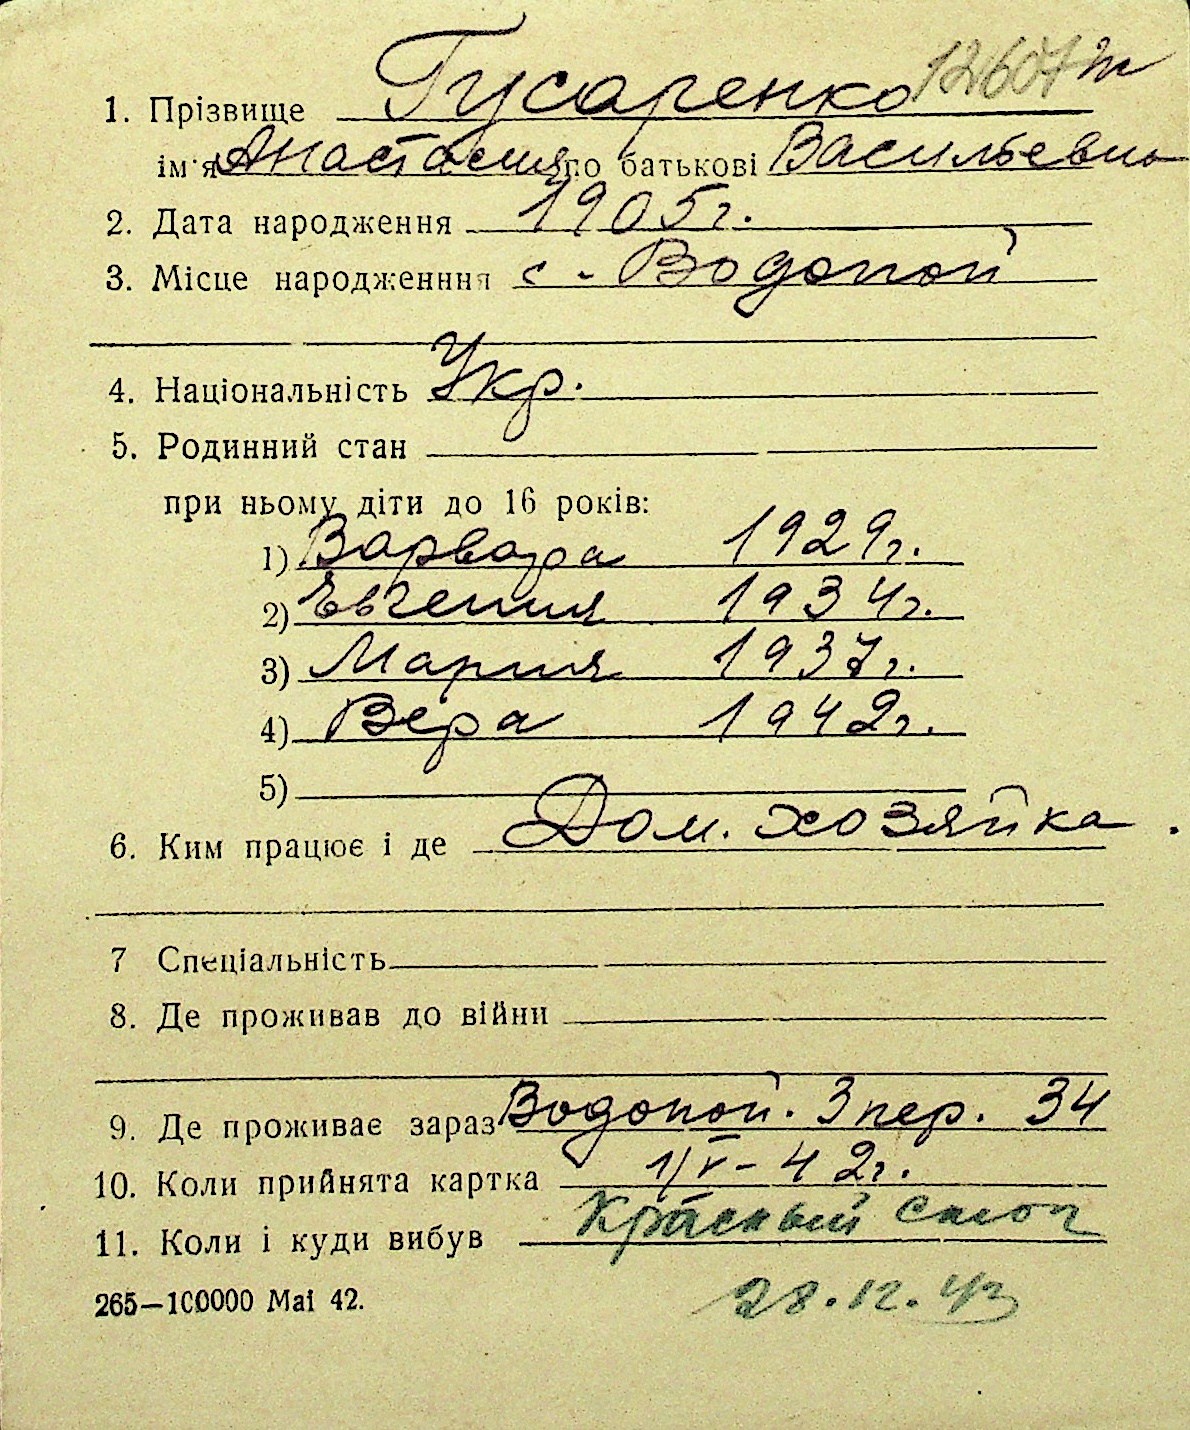 1. Прізвище Гусаренко 12607
ім'я Анастасия по батькові Васильевна
2. Дата народження 1905г.
3. Місце народженння с. Водопой
4. Національність Укр.
5. Родинний стан
при ньому діти до 16 років:
1) Варвара 1929г.
2) Евгения 1934г.
3) Мария 1937г.
4) Вера 1942г.
5)
6. Ким працює і де Дом. хозяйка.
7 Спеціальність
8. Де проживав до війни
9. Де проживає зараз Водопой. 3 пер. 34
10. Коли прийнята картка 1/V-42г.
11. Коли і куди вибув Красный
28.12.43
265—100000 Маі 42.